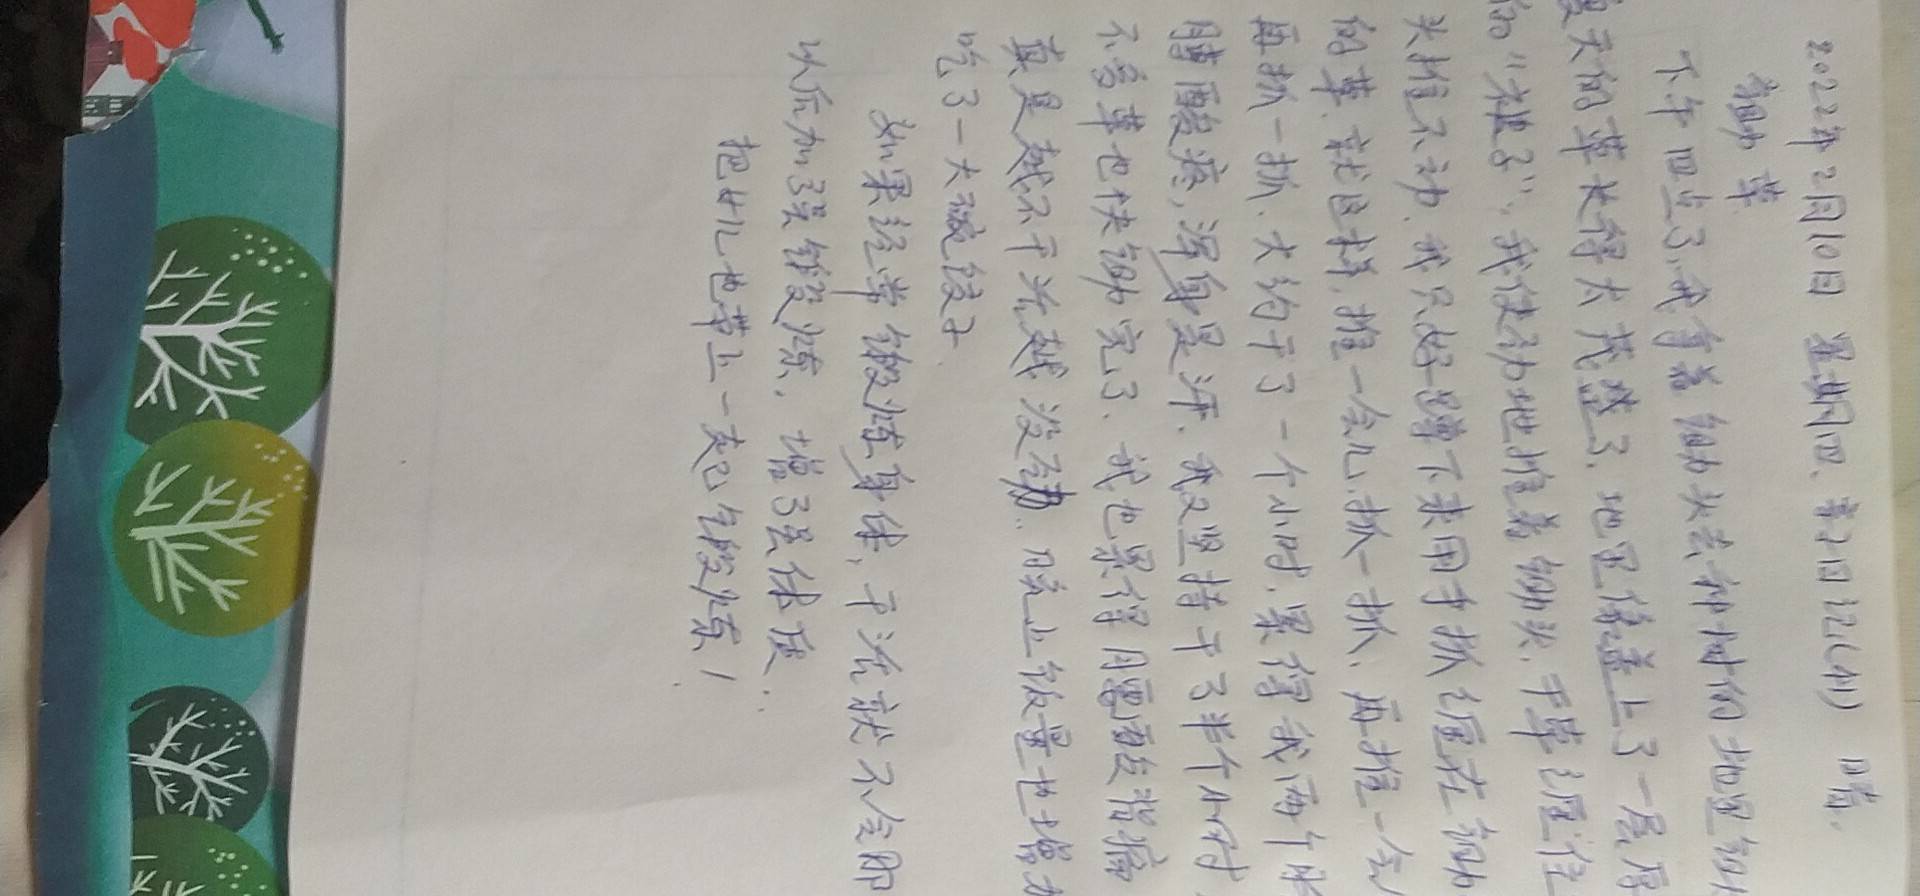 2022年2月10日 星期四、第2日记(41) 晴。
锄草
下午四点了,我拿着锄头去种树的地里锄
夏天的草长得太茂盛了、地里像盖上了一层厚
的“被子”,我使劲地推着锄头,干草缠住
头推不动.我只好蹲下来用手抓缠在锄
的草.就这样,推一会儿,抓一抓,再推一会
再抓一抓.大约干了一个小时.累得我两个胳
膊酸疼,浑身是汗.我又坚持干了半个小时
不管草也快锄完了、我也累得腰酸背痛
真是越不干活越没劲.晚上饭量也增加
吃了一大碗饺子.
如果经常锻炼身体,干活就不会
以后加强锻炼,增强体质.
把女儿也带上一起锻炼!